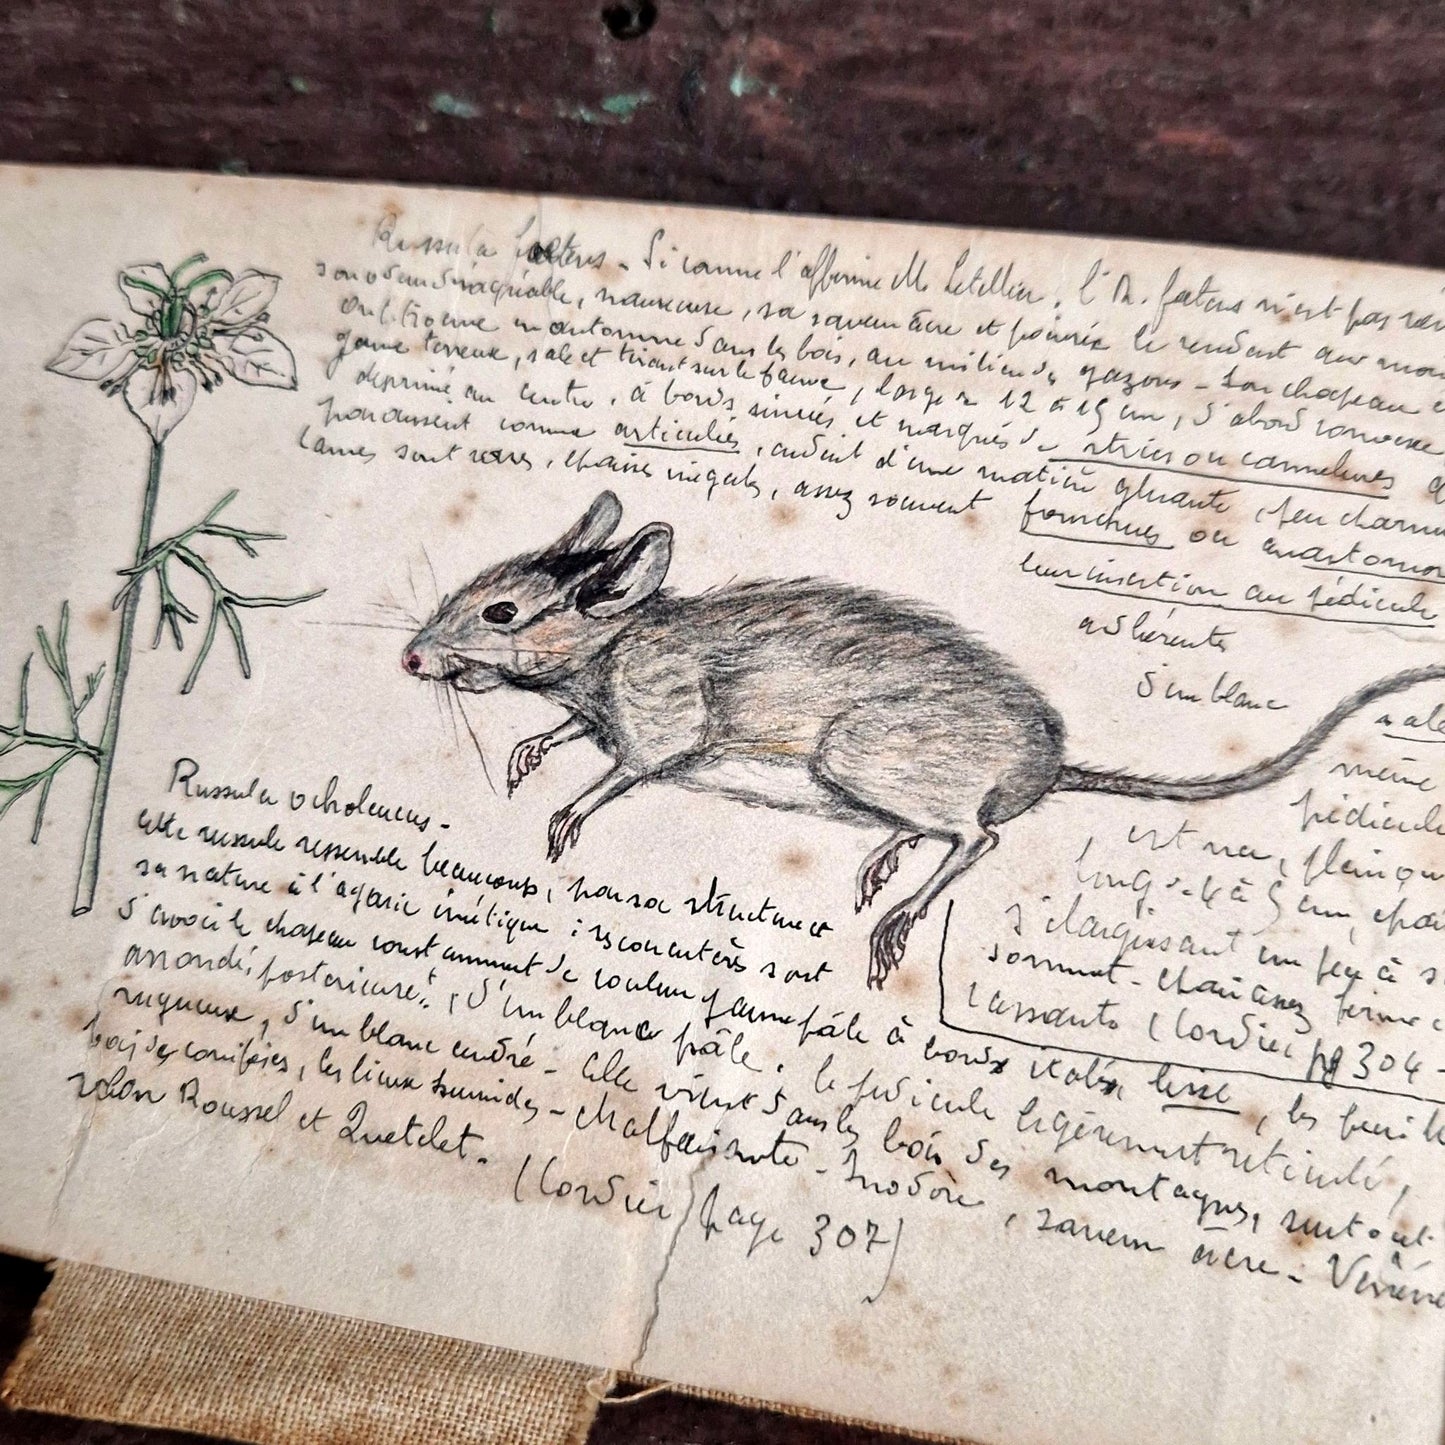 Russula foetens - Si comme l'affirme M. Letellier, l'R. foetens n'est pas
son odeur désagréable, nauséeuse, sa saveur âcre et poivrée le rendent aux
on le trouve en automne dans les bois, au milieu des gazons - Son chapeau
jaune terreux, sale et tirant sur le fauve, large de 12 à 15 cm, d'abord convexe
déprimé au centre, à bords sinués et marqués de stries ou cannelures
paraissent comme articulés, enduit d'une matière gluante, peu charnu
Lames sont rares, épaisses inégales, assez souvent fourchues ou
leur insertion au pédicule
adhérente
d'un blanc
même
pédicule
est nu, plein ou
long de 4 à 5 cm,
s'élargissant un peu à s
sommet - Chair assez ferme
cassante (Cordier pg 304 -
Russula ochroleucus -
cette russule ressemble beaucoup, par sa structure et
sa nature à l'agaric émétique ; ses caractères sont
d'avoir le chapeau constamment de couleur jaune pâle à bords étalés, lisse, les feuillets
arrondis postérieuret, d'un blanc pâle, le pédicule légèrement réticulé,
rugueux, d'un blanc cendré - Elle vient dans les bois des montagnes, surtout
bois de conifères, les lieux humides - Malfaisante - Inodore, saveur âcre -
selon Roussel et Quetelet. (Cordier page 307)